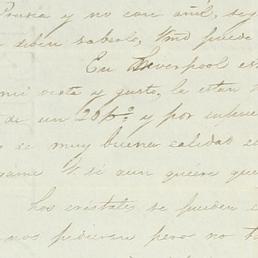 Prusia y no con añil, se
deben saberlo, Vmd puede
En Liverpool es
mi vista y gusto, la estan
de un 20 p% y por subu
se muy buena calidad e
game V. si aun quiere que
Los cristales se pueden
nos pidieran pero no t